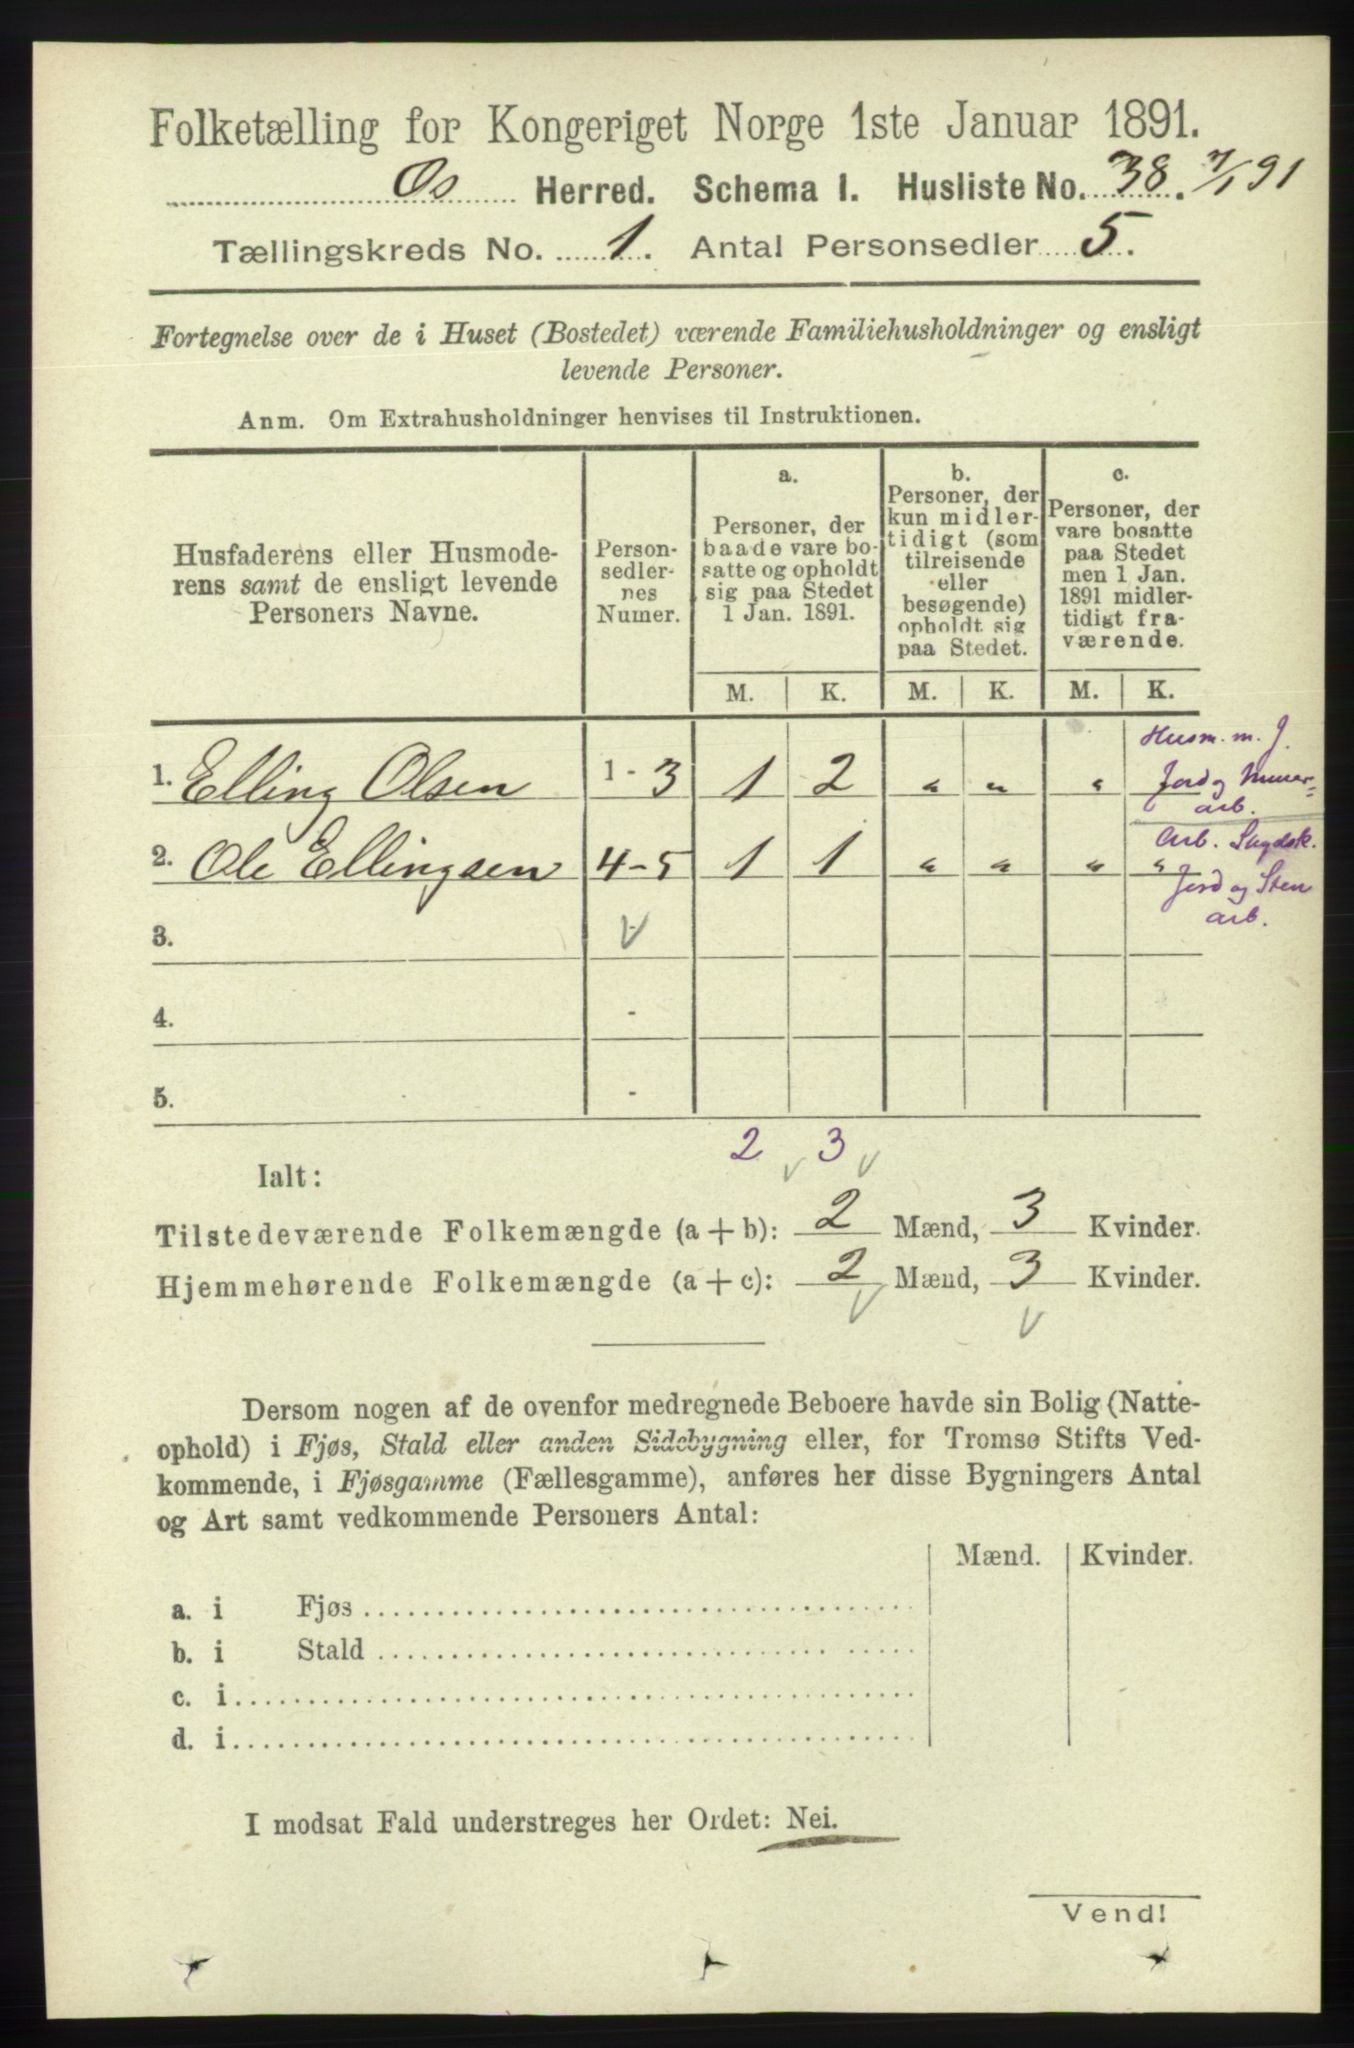 Folketælling for Kongeriget Norge 1ste Januar 1891.
Os Herred. Schema I. Husliste No. 38. 7/1 91
Tællingskreds No. 1. Antal Personsedler 5.
Fortegnelse over de i Huset (Bostedet) værende Familiehusholdninger og ensligt
levende Personer.
Anm. Om Extrahusholdninger henvises til Instruktionen.
Husfaderens eller Husmode-
rens samt de ensligt levende
Personers Navne.
Person-
sedler-
nes
Numer.
a.
Personer, der
baade vare bo-
satte og opholdt
sig paa Stedet
1 Jan. 1891.
b.
Personer, der
kun midler-
tidigt (som
tilreisende
eller
besøgende)
opholdt sig
paa Stedet.
c.
Personer, der
vare bosatte
paa Stedet
men 1 Jan.
1891 midler-
tidigt fra-
værende.
M. K. M. K. M. K.
Husm. m. J.
1. Elling Olsen 1 - 3 1 2 " " " Jord og Minear=
arb.
2. Ole Ellingsen 4-5 1 1 " " " "
Arb. Skydsk.
Jord og Sten
arb.
3.
4. -
5. -
2 3
Ialt:
Tilstedeværende Folkemængde (a + b): 2 Mænd, 3 Kvinder.
Hjemmehørende Folkemængde (a + c): 2 Mænd, 3 Kvinder.
Dersom nogen af de ovenfor medregnede Beboere havde sin Bolig (Natte-
ophold) i Fjøs, Stald eller anden Sidebygning eller, for Tromsø Stifts Ved-
kommende, i Fjøsgamme (Fællesgamme), anføres her disse Bygningers Antal
og Art samt vedkommende Personers Antal:
Mænd. Kvinder.
a. i Fjøs
b. i Stald
c. i
d. i
I modsat Fald understreges her Ordet: Nei.
Vend!